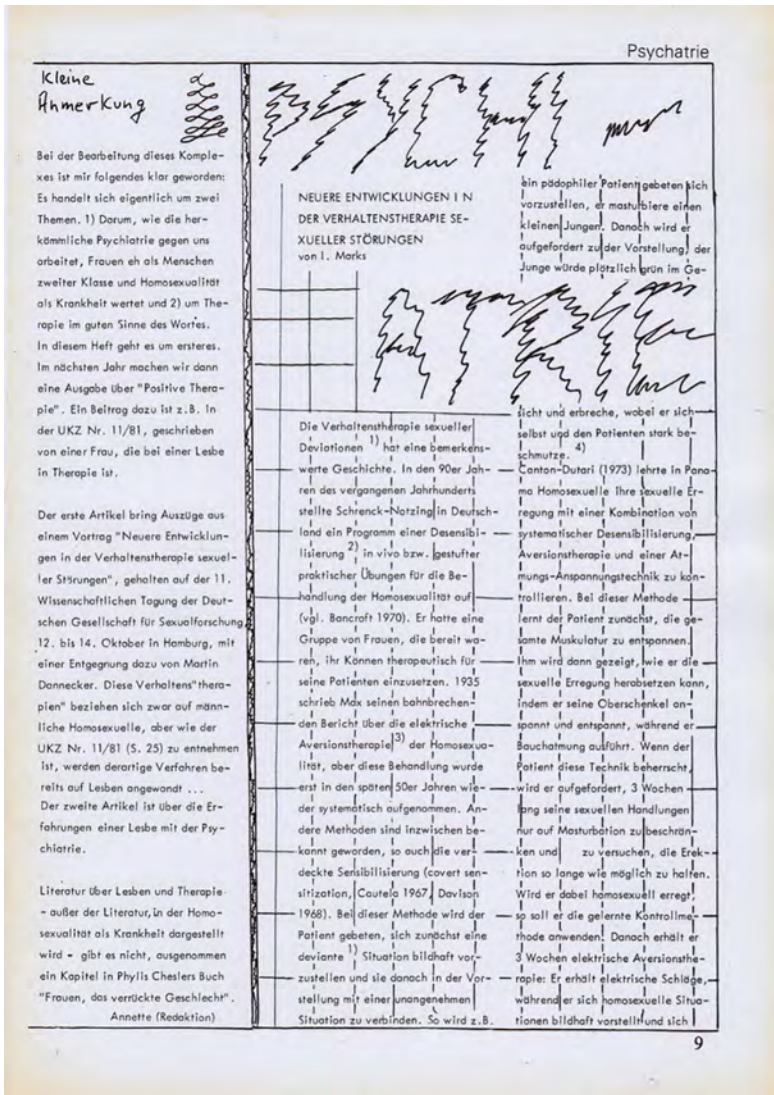 Psychatrie
Kleine
Anmerkung
Bei der Bearbeitung dieses Komple-
xes ist mir folgendes klar geworden:
Es handelt sich eigentlich um zwei
Themen. 1) Darum, wie die her-
kömmliche Psychiatrie gegen uns
arbeitet, Frauen eh als Menschen
zweiter Klasse und Homosexualität
als Krankheit wertet und 2) um The-
rapie im guten Sinne des Wortes.
In diesem Heft geht es um ersteres.
Im nächsten Jahr machen wir dann
eine Ausgabe über "Positive Thera-
pie". Ein Beitrag dazu ist z.B. in
der UKZ Nr. 11/81, geschrieben
von einer Frau, die bei einer Lesbe
in Therapie ist.
Der erste Artikel bring Auszüge aus
einem Vortrag "Neuere Entwicklun-
gen in der Verhaltenstherapie sexuel-
ler Störungen", gehalten auf der 11.
Wissenschaftlichen Tagung der Deut-
schen Gesellschaft für Sexualforschung,
12. bis 14. Oktober in Hamburg, mit
einer Entgegnung dazu von Martin
Dannecker. Diese Verhaltens"thera-
pien" beziehen sich zwar auf männ-
liche Homosexuelle, aber wie der
UKZ Nr. 11/81 (S. 25) zu entnehmen
ist, werden derartige Verfahren be-
reits auf Lesben angewandt ...
Der zweite Artikel ist über die Er-
fahrungen einer Lesbe mit der Psy-
chiatrie.
Literatur über Lesben und Therapie
- außer der Literatur, in der Homo-
sexualität als Krankheit dargestellt
wird - gibt es nicht, ausgenommen
ein Kapitel in Phyllis Cheslers Buch
"Frauen, das verrückte Geschlecht".
Annette (Redaktion)
PSYCHIATRIE
NEUERE ENTWICKLUNGEN I N
DER VERHALTENSTHERAPIE SE-
XUELLER STÖRUNGEN
von I. Marks
Die Verhaltenstherapie sexueller
Deviationen 1) hat eine bemerkens-
werte Geschichte. In den 90er Jah-
ren des vergangenen Jahrhunderts
stellte Schrenck-Notzing in Deutsch-
land ein Programm einer Desensibi-
lisierung 2) in vivo bzw. gestufter
praktischer Übungen für die Be-
handlung der Homosexualität auf
(vgl. Bancroft 1970). Er hatte eine
Gruppe von Frauen, die bereit wa-
ren, ihr Können therapeutisch für
seine Patienten einzusetzen. 1935
schrieb Max seinen bahnbrechen-
den Bericht über die elektrische
Aversionstherapie 3) der Homosexua-
lität, aber diese Behandlung wurde
erst in den späten 50er Jahren wie-
der systematisch aufgenommen. An-
dere Methoden sind inzwischen be-
kannt geworden, so auch die ver-
deckte Sensibilisierung (covert sen-
sitization, Cautela 1967, Davison
1968). Bei dieser Methode wird der
Patient gebeten, sich zunächst eine
deviante 1) Situation bildhaft vor-
zustellen und sie danach in der Vor-
stellung mit einer unangenehmen
Situation zu verbinden. So wird z.B.
ein pädophiler Patient gebeten sich
vorzustellen, er masturbiere einen
kleinen Jungen. Danach wird er
aufgefordert zu der Vorstellung, der
Junge würde plötzlich grün im Ge-
sicht und erbreche, wobei er sich
selbst und den Patienten stark be-
schmutze. 4)
Canton-Dutari (1973) lehrte in Pana-
ma Homosexuelle Ihre sexuelle Er-
regung mit einer Kombination von
systematischer Desensibilisierung,
Aversionstherapie und einer At-
mungs-Anspannungstechnik zu kon-
trollieren. Bei dieser Methode
lernt der Patient zunächst, die ge-
samte Muskulatur zu entspannen.
Ihm wird dann gezeigt, wie er die
sexuelle Erregung herabsetzen kann,
indem er seine Oberschenkel an-
spannt und entspannt, während er
Bauchatmung ausführt. Wenn der
Patient diese Technik beherrscht,
wird er aufgefordert, 3 Wochen
lang seine sexuellen Handlungen
nur auf Masturbation zu beschrän-
ken und zu versuchen, die Erek-
tion so lange wie möglich zu halten.
Wird er dabei homosexuell erregt,
so soll er die gelernte Kontrollme-
thode anwenden. Danach erhält er
3 Wochen elektrische Aversionsthe-
rapie: Er erhält elektrische Schläge,
während er sich homosexuelle Situa-
tionen bildhaft vorstellt und sich
9